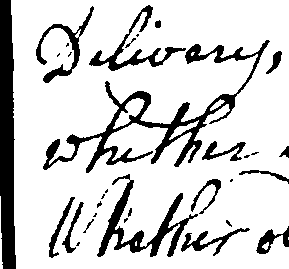 Delivery,
whether
Whether or